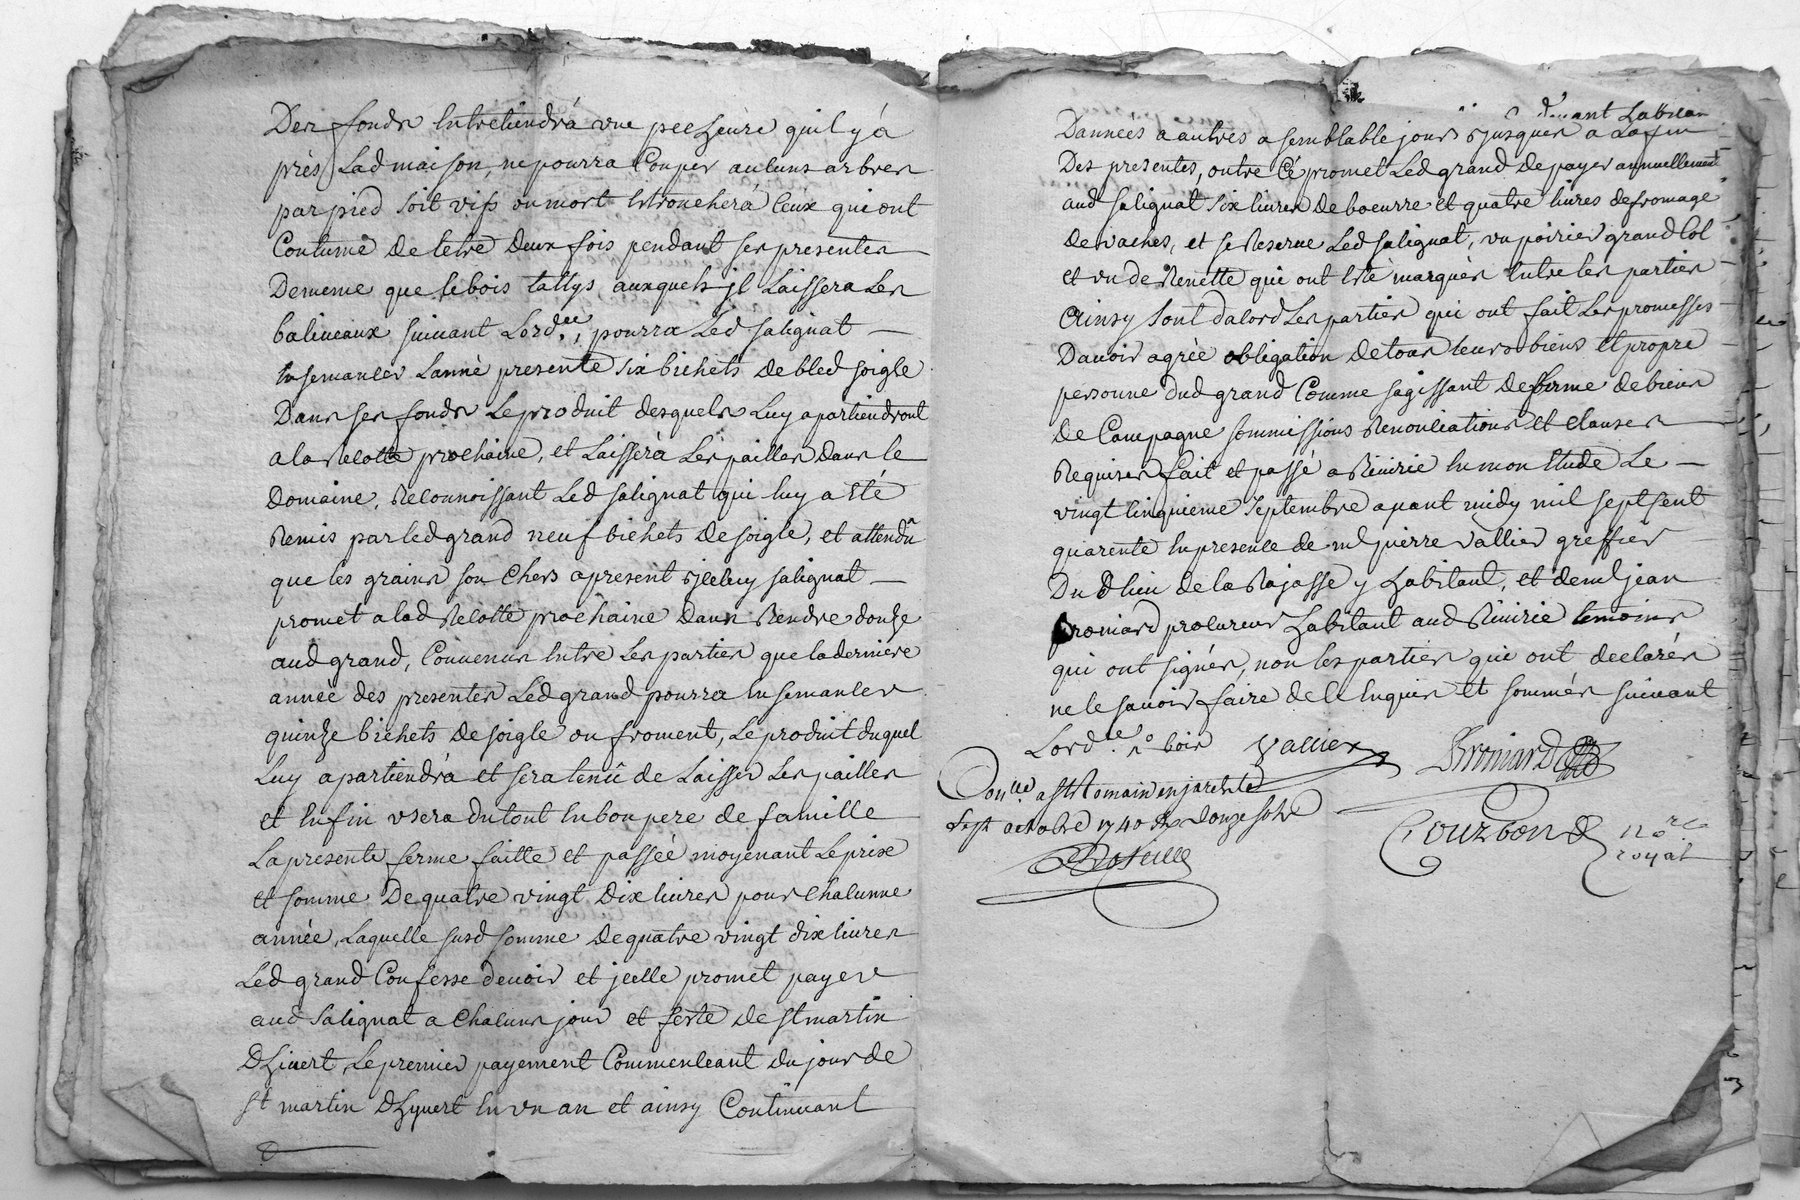 Des fonds entretiendrá une pecheure quil y á
près Lad maison, ne pourra Couper aucuns arbres
par pied soit vifs ou mort Etroncherà ceux qui ont
Coutume de letre deux fois pendant ses presentes
Dememe que le bois tallys auxquels jl Laissera Les
baliveaux suivant Lord.ce, pourra Led salignat
Ensemancer Lannè presente six bichets de bled soigle
Dans ses fonds Le produit desquels Luy apartiendront
a la Recolte prochaine, et Laissèrà Les pailles dans le
Domaine, Reconnoissant Led salignat qui luy a Eté
Remis par led grand neuf bichets de soigle, et attendû
que les grains son Chers apresent Jceluy salignat
promet a lad Recolte prochaine dans Rendre douze
aud grand, Convenus Entre Les parties que la derniere
année des presentes Led grand pourra Ensemancer
quinze bichets de soigle ou froment, Le produit duquel
Luy apartiendrá et sera tenû de Laisser Les pailles
et Enfin usera du tout En bon pere de famille
La presente ferme faitte et passée moyenant Le prix
et somme De quatre vingt Dix livres pour chacunne
année, Laquelle susd somme de quatre vingt dix livres
Led grand Confesse devoir et jcelle promet payer
aud salignat a chacuns jour et feste de st martin
Dhivert, Le premier payement Commenceant du jour de
st martin Dhyvert En un an et ainsy Continuant
Dannees a autres a semblable jours Jusques a La fin
Des presentes, outre Cé promet Led grand De payer annuellement
aud salignat six livres De boeurre et quatre livres de fromage
de vaches, et se Reserve Led salignat, un poirier grand Col
et un de Renette qui ont Eté marquès Entre les parties
Ainsy sont dacord Les parties qui ont fait Les promesses
Davoir agrèe obligation de tous leurs biens et propre
personne dud grand Comme sagissant de ferme de biens
de Campagne sommissions Renonciations et Clauses
Requises fait et passé a Rivirie En mon Etude Le
vingt cinquieme septembre apant midy mil sept sent
quarente En presence de me pierre Vallier greffier
Du d lieu de la Rajasse y habitant, et de me jean
Bromard procureur habitant aud Rivirie temoins
qui ont signés, non les parties qui ont declarés
ne le savoir faire de ce Enquis et sommés suivant
Lord.ce
Vallier
Bromard
Con.lé a St Romain en jarest le
Sept octobre 1740 Rx douze sols
Gourbond no.re
royal